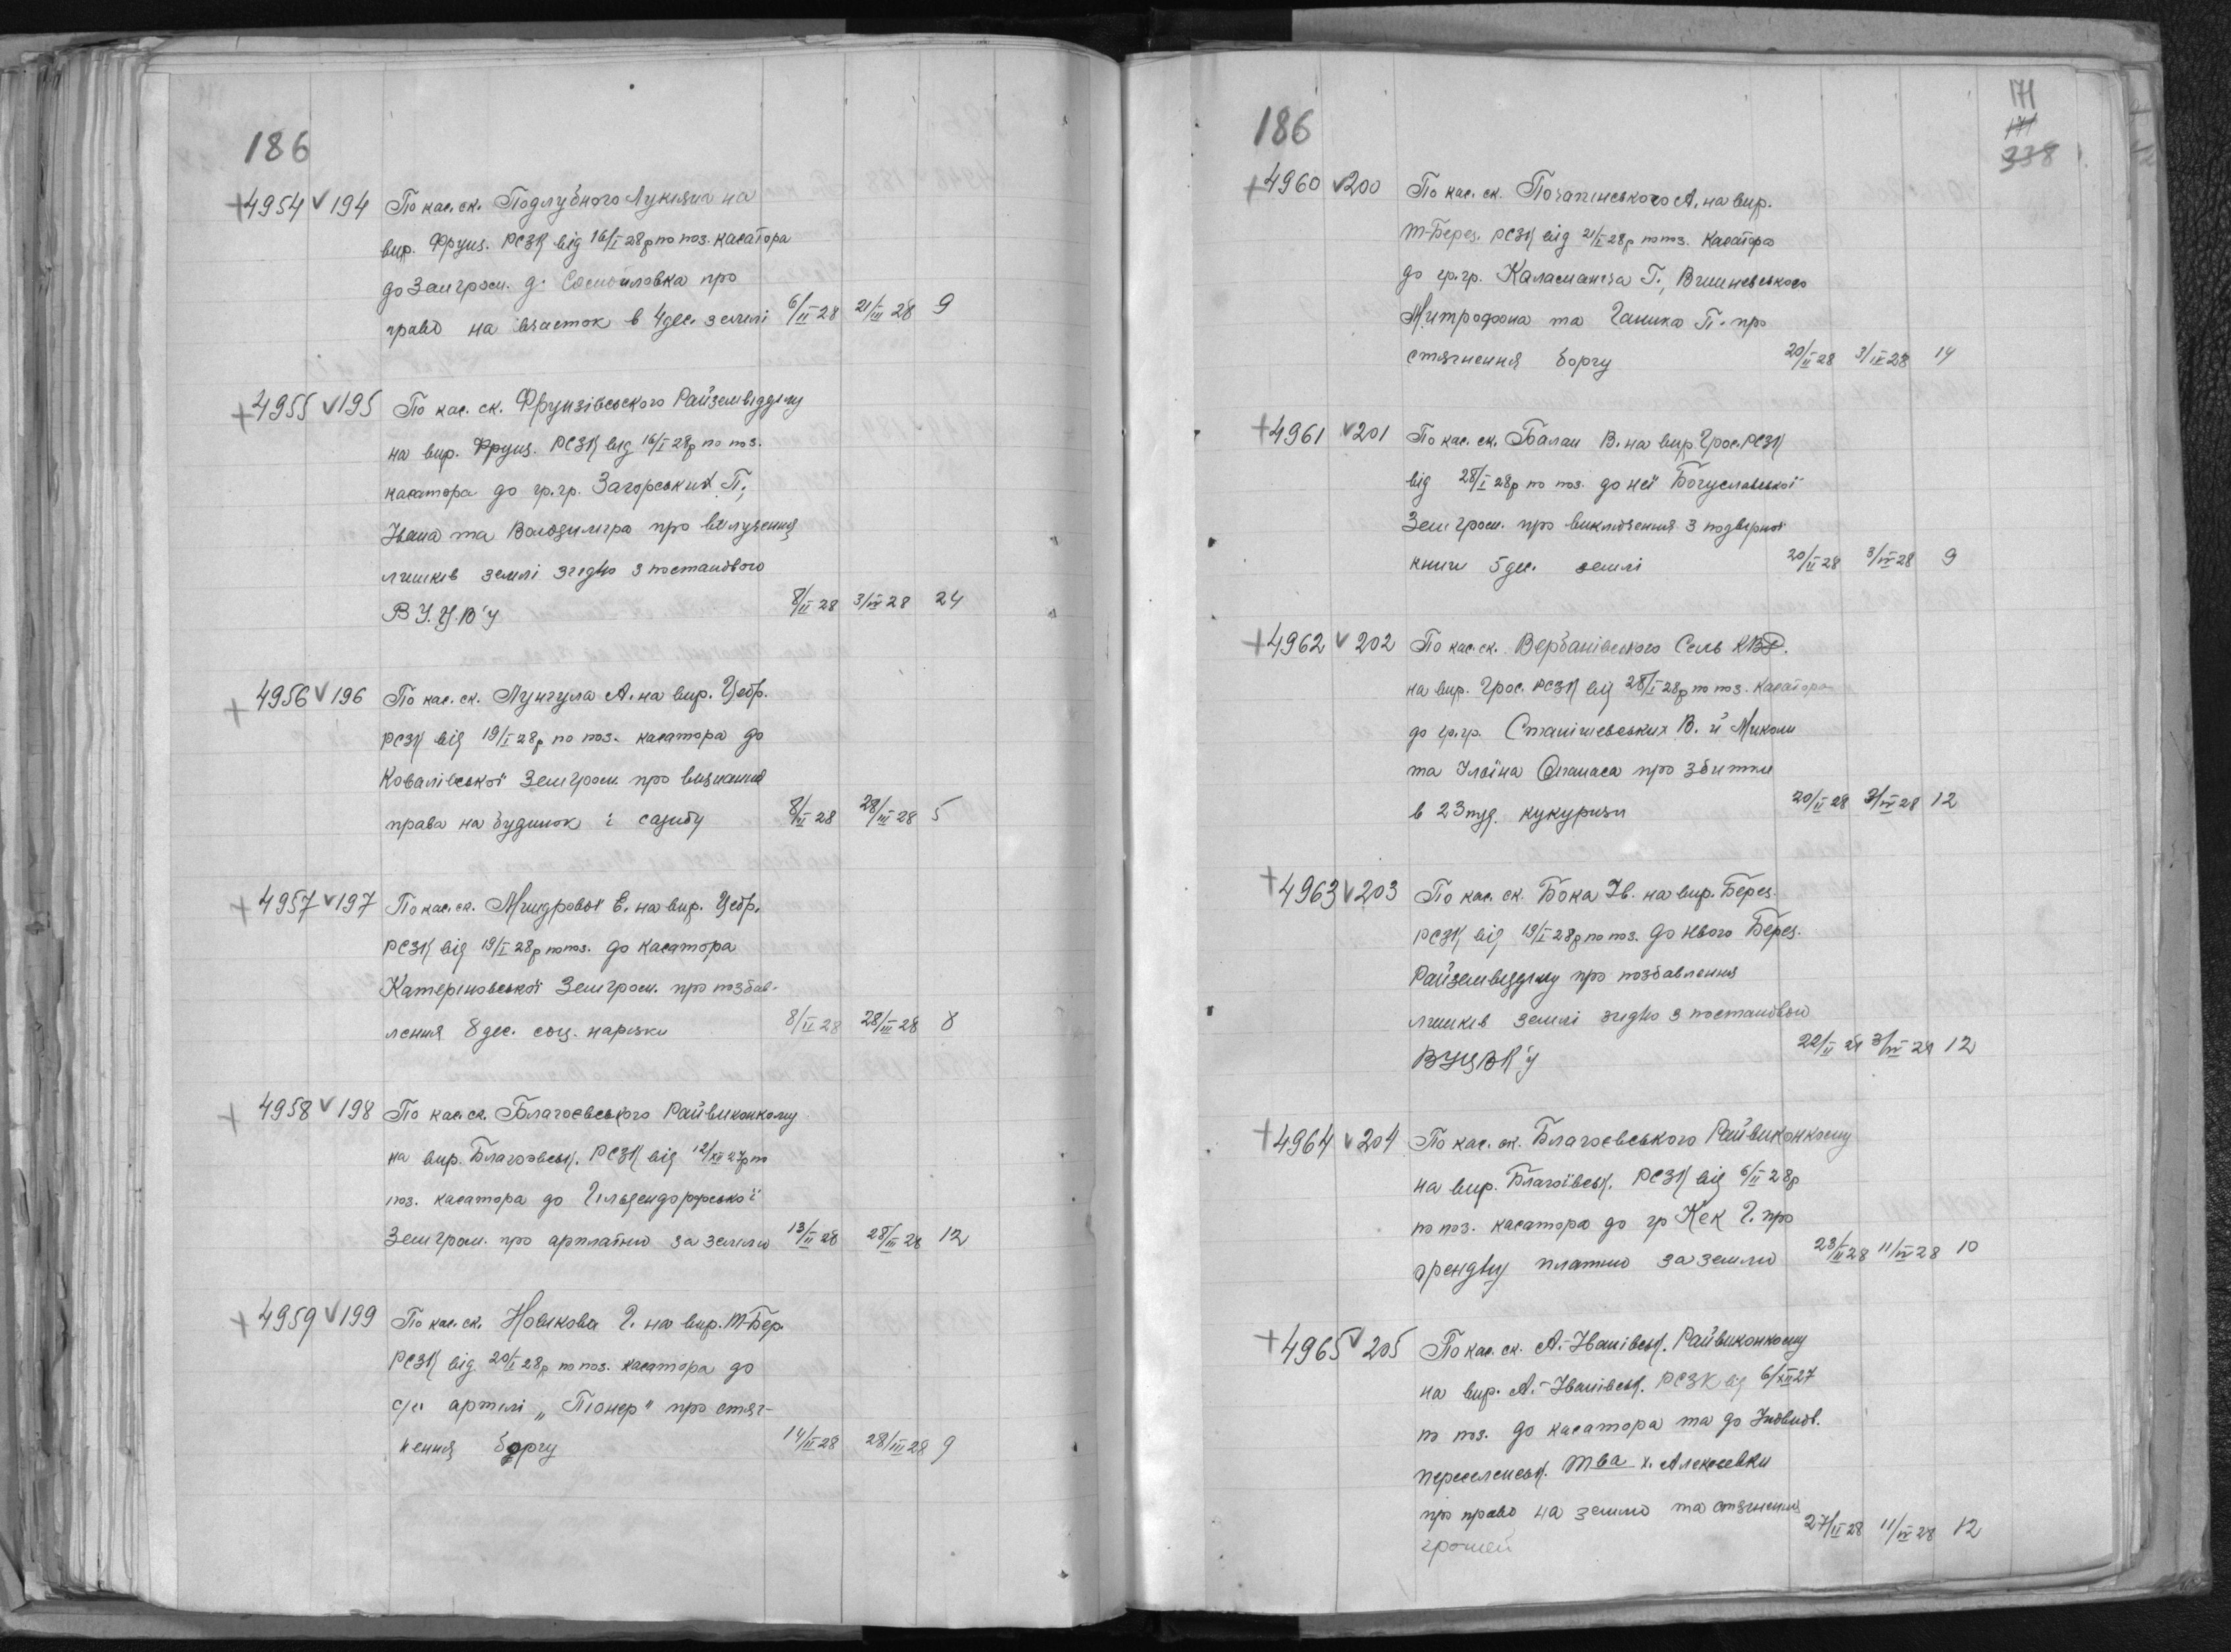 186
+4954 v 194 По кас. ск. Подлубного Лукіяна на
вир. Фрунз. РСЗК від 16/I 28р по поз. касатора
до Земгром. д. Самойловка про
право на участок в 4 дес. землі 6/II 28 21/III 28 9
+4955 v 195 По кас. ск. Фрунзівського Райземвідділу
на вир. Фрунз. РСЗК від 16/I 28р по поз.
касатора до гр.гр. Загорських П.,
Івана та Володиміра про вилучення
лишків землі згідно з постановою
В.У.Ц.В.'у 8/II 28 3/IV 28 24
+4956 v 196 По кас. ск. Лунгула А. на вир. Цебр.
РСЗК від 19/I 28р по поз. касатора до
Ковалівської Земгром. про визнання
права на будинок і садибу 8/II 28 28/III 28 5
+4957 v 197 По кас. ск. Миндрової Е. на вир. Цебр.
РСЗК від 19/I 28р по поз. до касатора
Катеріновської Земгром. про позбав-
лення 8 дес. соц. нарізки 8/II 28 28/III 28 8
+4958 v 198 По кас. ск. Благоєвського Райвиконкому
на вир. Благоєвськ. РСЗК від 12/XII 27р по
поз. касатора до Гільдендорфської
Земгром. про арплатню за землю 13/II 28 28/III 28 12
+4959 v 199 По кас. ск. Новикова Г. на вир. Т-Бер.
РСЗК від 20/I 28р по поз. касатора до
с/г артілі „Піонер" про стяг-
нення боргу 14/II 28 28/III 28 9
186
171
171
338
+4960 v 200 По кас. ск. Почапинського А. на вир.
Т-Берез. РСЗК від 21/I 28р по поз. касатора
до гр.гр. Каламанча Г., Вишневського
Митрофона та Ганика П. про
стягнення боргу 20/II 28 3/IV 28 14
+4961 v 201 По кас. ск. Балан В. на вир. Грос. РСЗК
від 28/I 28р по поз. до неї Богуславської
Земгром. про виключення з подвірної
книги 5 дес. землі 20/II 28 3/IV 28 9
+4962 v 202 По кас. ск. Вербанівського Сель КВД.
на вир. Грос. РСЗК від 28/I 28р по поз. касатора
до гр.гр. Станішевських В. й Миколи
та Ільїна Опанаса про збитки
в 23 пуд. кукурузи 20/II 28 3/IV 28 12
+4963 v 203 По кас. ск. Бока Ів. на вир. Берез.
РСЗК від 19/I 28р по поз. до нього Берез.
Райземвідділу про позбавлення
лишків землі згідно з постановою
ВУЦВК'у 22/II 28 3/IV 28 12
+4964 v 204 По кас. ск. Благоєвського Райвиконкому
на вир. Благоївськ. РСЗК від 6/II 28р
по поз. касатора до гр Кек Г. про
орендну платню за землю 23/II 28 11/IV 28 10
+4965 v 205 По кас. ск. А.-Іванівськ. Райвиконкому
на вир. А.-Іванівськ. РСЗК від 6/XII 27
по поз. до касатора та до Індивідв.
переселенськ. Т-ва х. Алексеевки
про право на землю та стягнення
грошей 27/II 28 11/IV 28 12